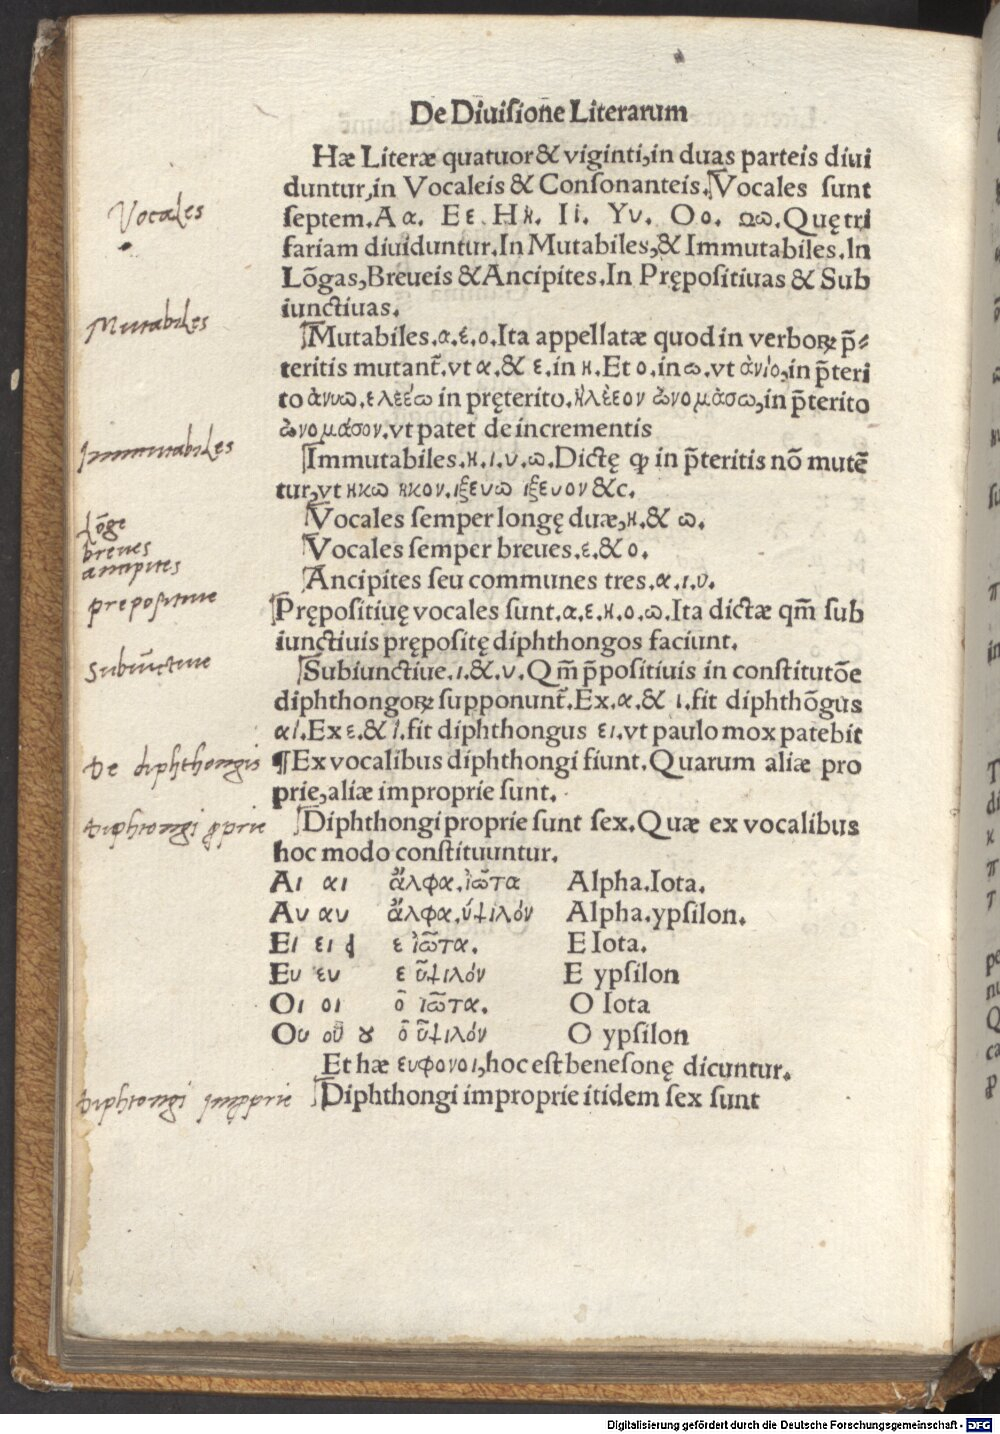 De Diuisione Literarum
Hæ Literæ quatuor & viginti, in duas parteis diui
duntur, in Vocaleis & Consonanteis. Vocales sunt
Vocales
septem. Α α. Ε ε. Η η. Ι ι. Υ υ. Ο ο. Ω ω. Quę tri
fariam diuiduntur. In Mutabiles, & Immutabiles. In
Lõgas, Breueis & Ancipites. In Prępositiuas & Sub
iunctiuas.
Mutabiles
Mutabiles. α. ε. ο. Ita appellatæ quod in verboꝝ p̃-
teritis mutant̃. vt α. & ε. in η. Et ο. in ω. vt ἀνίο, in p̃teri
to ἀνυω. ελεέω in pręterito. ἠλέεον ὠνομὰσω, in p̃terito
ὠνομάσον. vt patet de incrementis
Immutabiles
Immutabiles. η. ι. υ. ω. Dictę ꝙ in p̃teritis nõ mutẽ
tur, vt ηκω ηκον. ιξευω ιξευον &c.
Lõge
Vocales semper longę duæ, η. & ω.
breues
Vocales semper breues. ε. & ο.
ancipites
Ancipites seu communes tres. α. ι. υ.
prepositiue
Prępositiuę vocales sunt. α. ε. η. ο. ω. Ita dictæ qm̃ sub
iunctiuis prępositę diphthongos faciunt.
Subiũctiue
Subiunctiue. ι. & υ. Qm̃ p̃positiuis in constitutõe
diphthongoꝝ supponunt̃. Ex. α. & ι. fit diphthõgus
αι. Ex ε. & ι. fit diphthongus ει. vt paulo mox patebit
De diphthongis
¶ Ex vocalibus diphthongi fiunt. Quarum aliæ pro
prie, aliæ improprie sunt.
Diphtongi ꝓprie
Diphthongi proprie sunt sex. Quæ ex vocalibus
hoc modo constituuntur.
Αι αι ἄλφα. ἰῶτα Alpha. Iota.
Αυ αυ ἄλφα. ύψιλόν Alpha. ypsilon.
Ει ει ε ἰῶτα. E Iota.
Ευ ευ ε ῦψιλόν E ypsilon
Οι οι ὃ ιῶτα. O Iota
Ου οῦ ȣ ὃ ῦψιλόν O ypsilon
Et hæ ευφονοι, hoc est benesonę dicuntur.
Diphtongi Imꝓprie
Diphthongi improprie itidem sex sunt
Digitalisierung gefördert durch die Deutsche Forschungsgemeinschaft - DFG